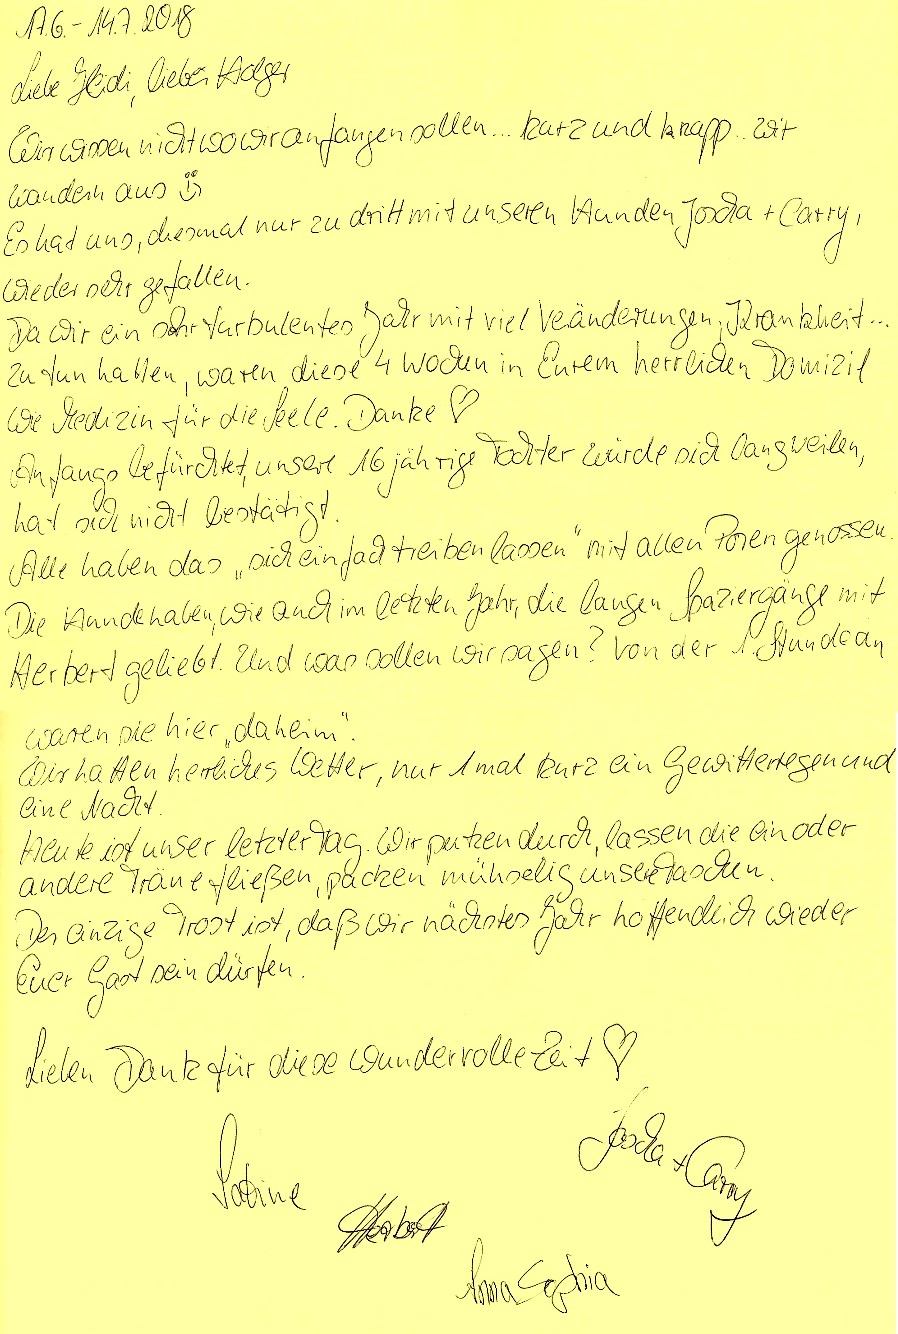 17.6.-14.7.2018
Liebe Heidi, lieber Holger
Wir wissen nicht wo wir anfangen sollen... kurz und knapp.. wir
wandern aus ☺
Es hat uns, diesmal nur zu dritt mit unseren Hunden Joscha + Carry,
wieder sehr gefallen.
Da wir ein sehr turbulentes Jahr mit viel Veänderungen, Krankheit...
zu tun hatten, waren diese 4 Wochen in Eurem herrlichen Domizil
wie Medizin für die Seele. Danke ♡
Anfangs befürchtet, unsere 16 jährige Tochter würde sich langweilen,
hat sich nicht bestätigt.
Alle haben das „sich einfach treiben lassen" mit allen Poren genossen.
Die Hunde haben, wie auch im letzten Jahr, die langen Spaziergänge mit
Herbert geliebt. Und was sollen wir sagen? Von der 1. Stunde an
waren sie hier „daheim".
Wir hatten herrliches Wetter, nur 1 mal kurz ein Gewitterregen und
eine Nacht.
Heute ist unser letzter Tag. Wir putzen durch, lassen die ein oder
andere Träne fließen, packen mühselig unsere Taschen.
Der einzige Trost ist, daß wir nächstes Jahr hoffendlich wieder
Euer Gast sein dürfen.
Lieben Dank für diese wundervolle Zeit ♡
Joscha + Carry
Sabine
Herbert
Anna Sophia